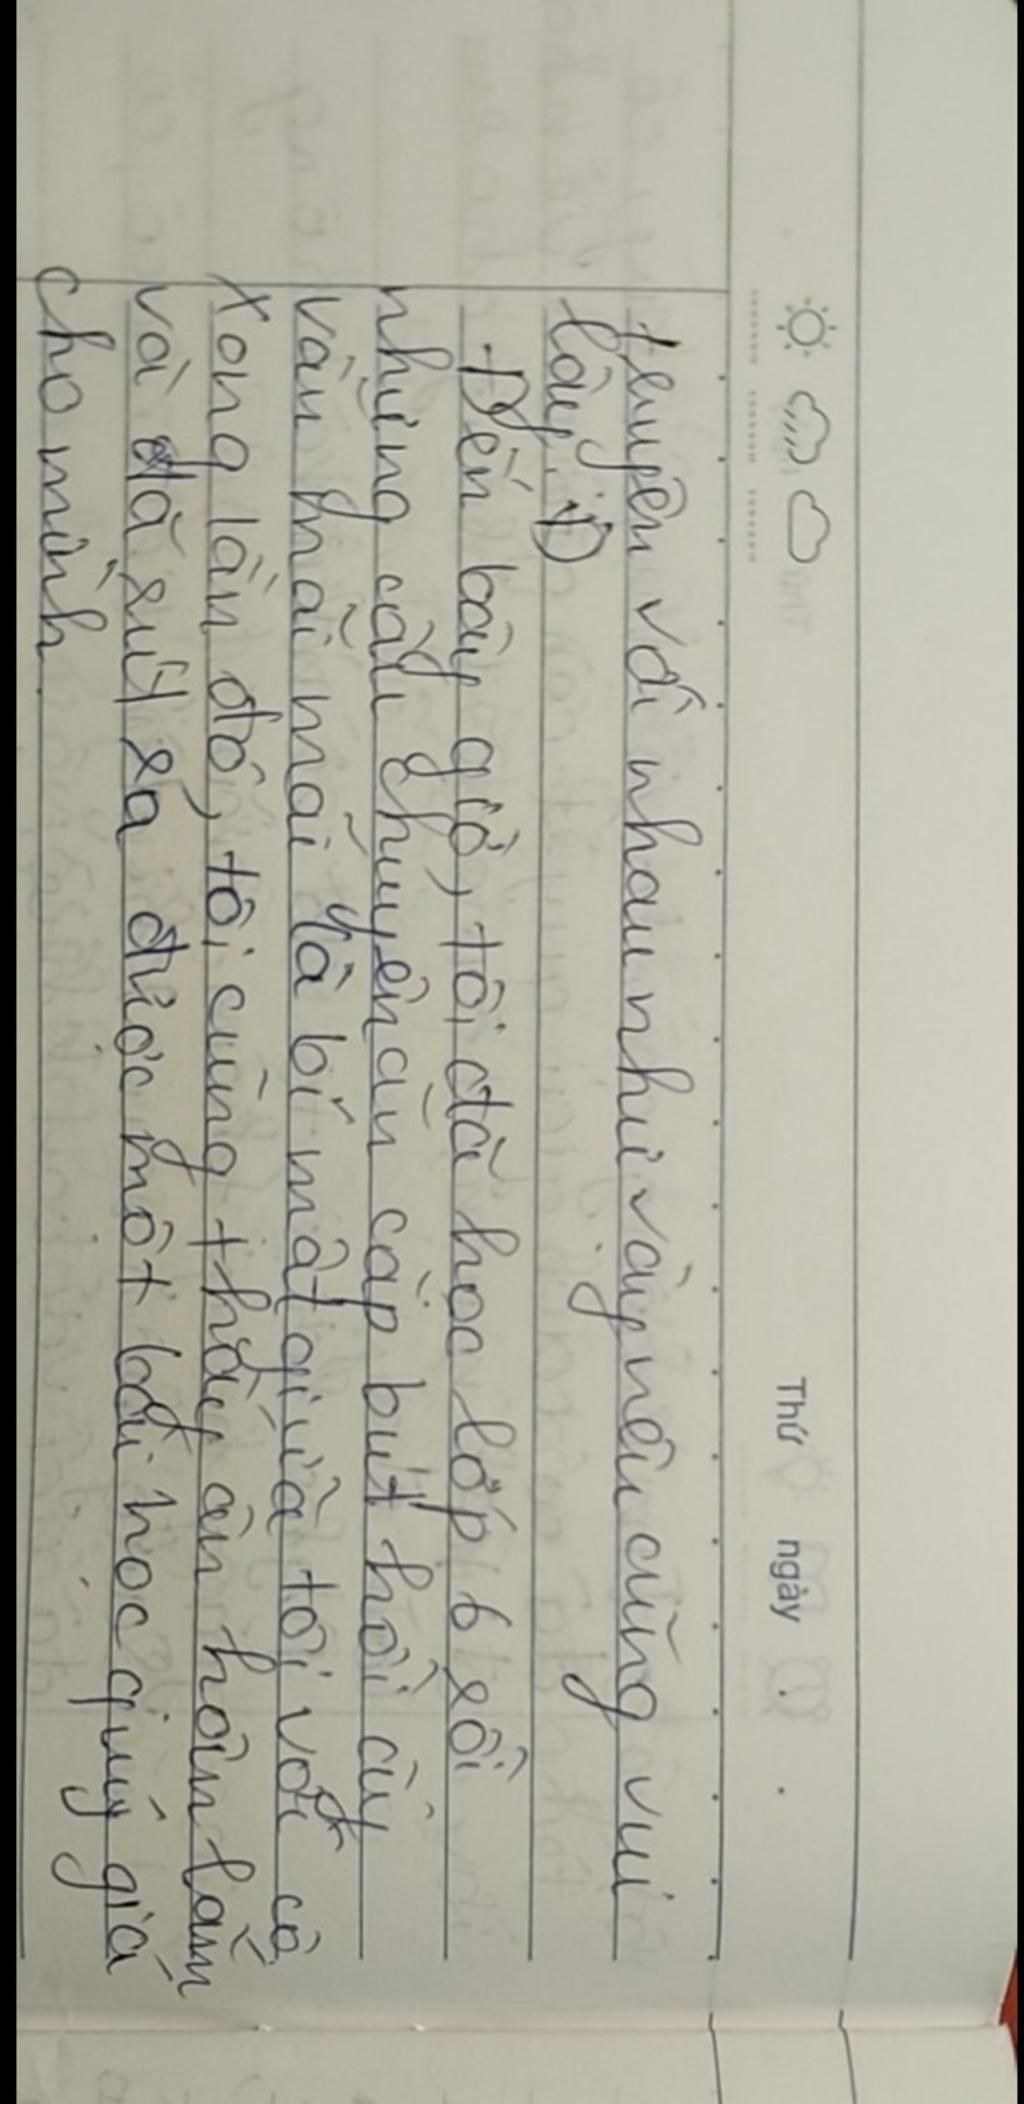 Thứ ngày . .
truyện với nhau như vậy nên cũng vui
lây. :D
Đến bây giờ, tôi đã học lớp 6 rồi
nhưng câu chuyện ăn cắp bút hồi ấy
vẫn mãi mãi là bí mật giữa tôi với cô.
Xong lần đó, tôi cũng thấy ân hận lắm
và đã rút ra được một bài học quý giá
cho mình.